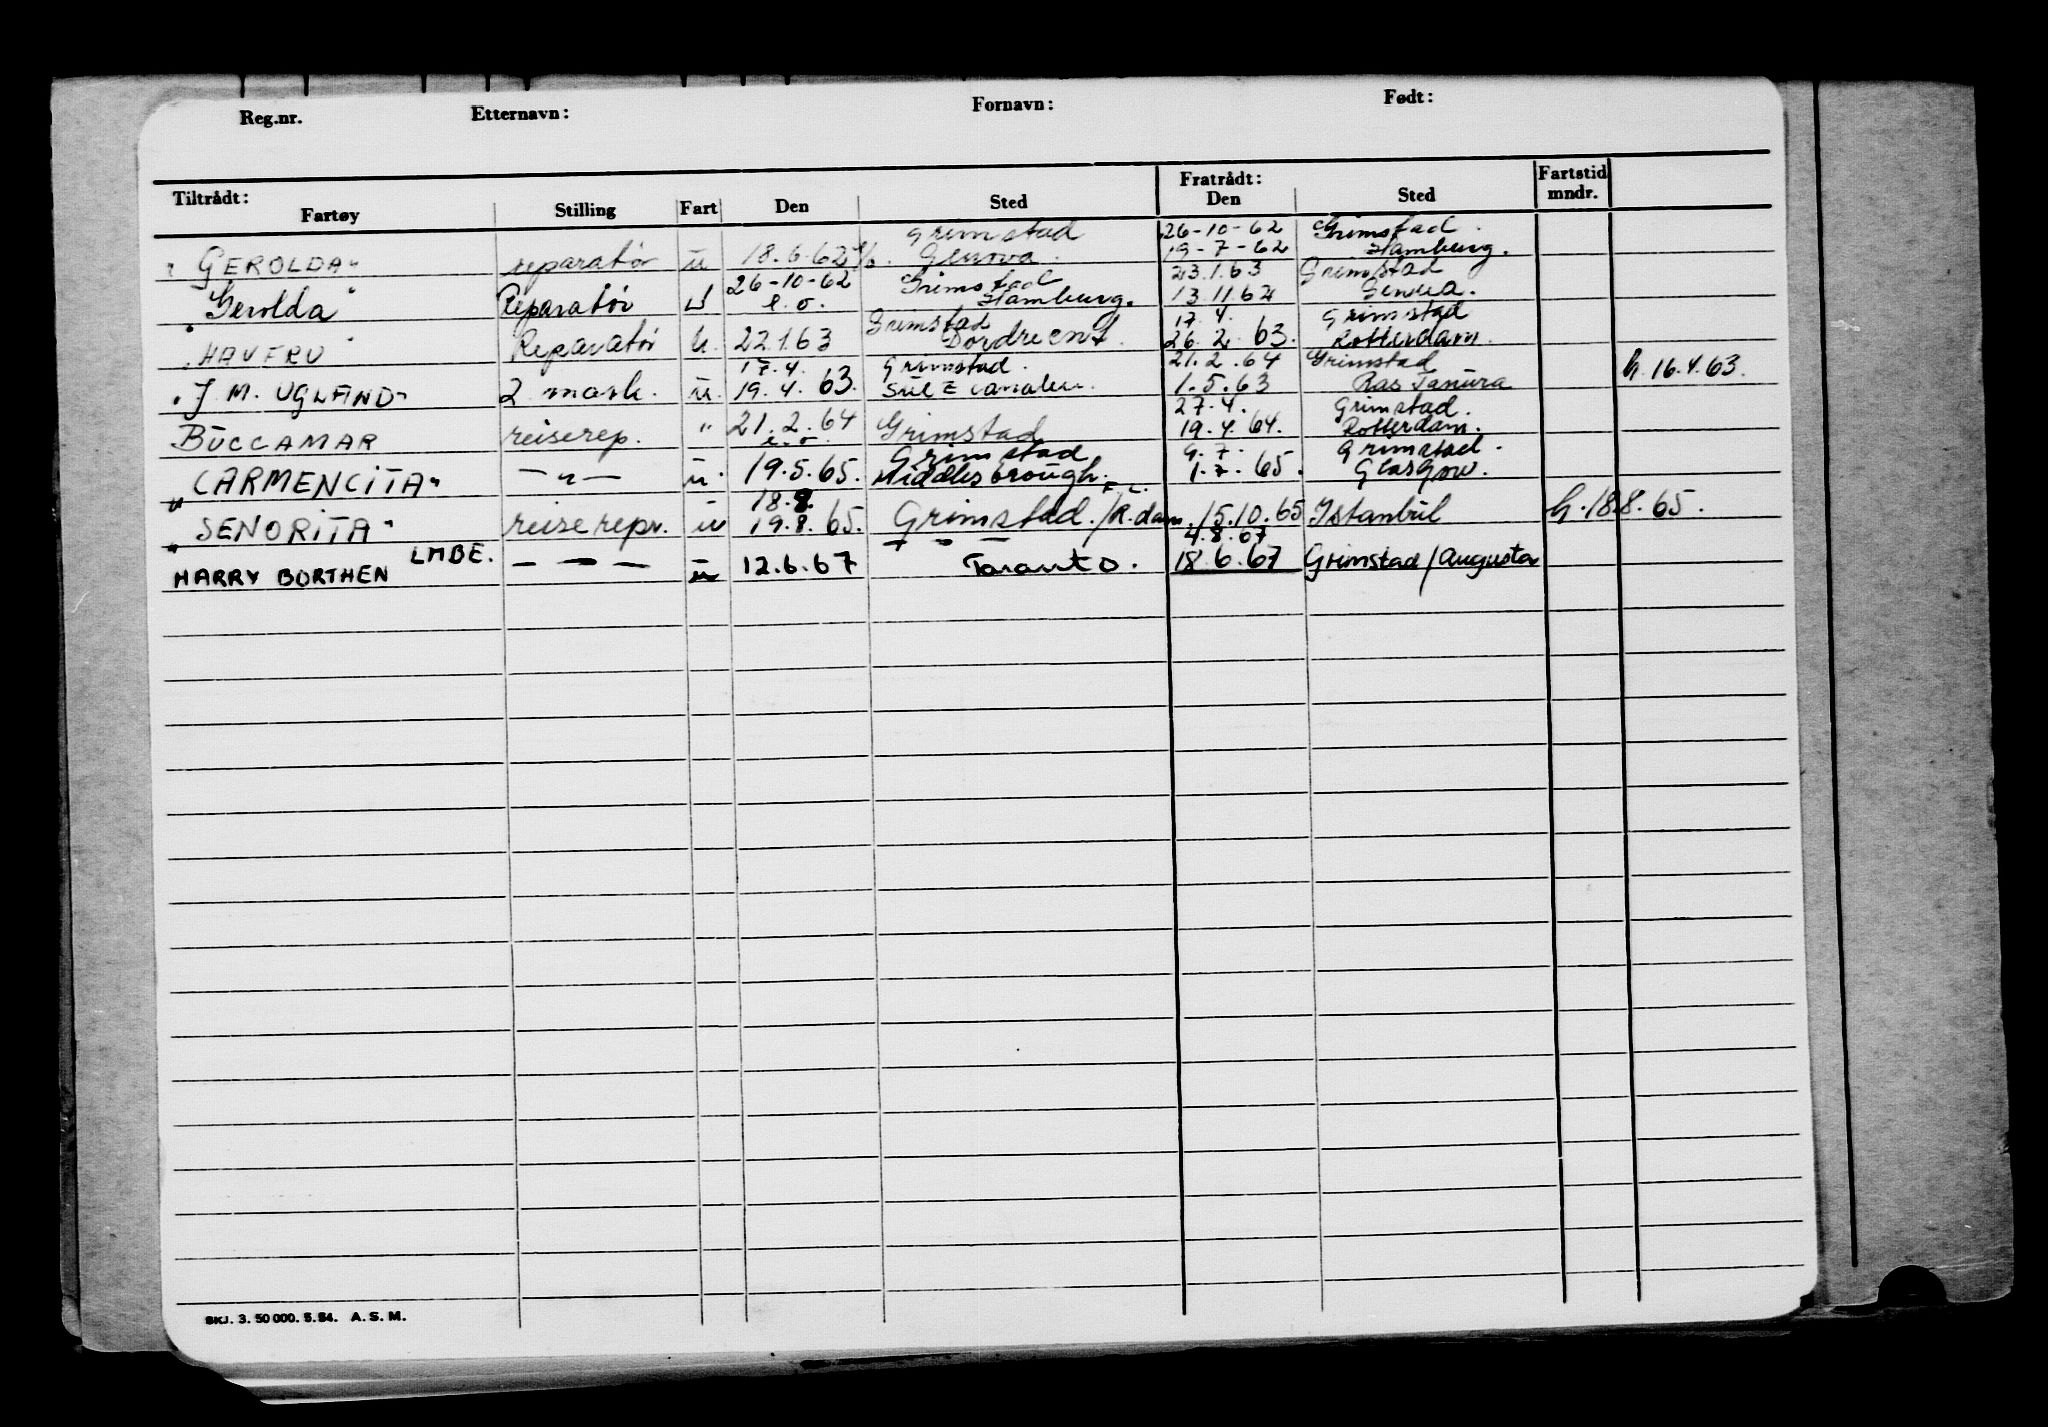 Reg.nr. Etternavn: Fornavn: Født:
Tiltrådt: Fratrådt: Fartstid
Fartøy Stilling Fart Den Sted Den Sted mndr.
Grimstad 26-10-62 Grimstad.
" GEROLDA" reparatør u 18.6.62 Genova. 19-7-62 Hamburg.
26-10-62 Grimstad 23.1.63 Grimstad
Gerolda" Reparatør U e.o. Hamburg. 13.11.62 Genua.
Grimstad 17.4. Grimstad
"HAVFRU" Reparatør u. 22.1.63 Dordrecht. 26.2.63. Rotterdam.
17.4. Grimstad. 21.2.64 Grimstad
"J.M. UGLAND" 2 mask. u. 19.4.63. Suez canalen. 1.5.63 Ras Tanura h. 16.4.63.
21.2.64 27.4. Grimstad.
BUCCAMAR reiserep. " e.o. Grimstad 19.4.64. Rotterdam.
Grimstad 9.7. Grimstad.
"CARMENCITA" —"— u. 19.5.65. Middlesbrough. 1.7.65. Glasgow.
18.8.
"SENORITA" reiserepr. u 19.8.65. Grimstad./R.dam. 15.10.65 Istanbul h.18.8.65.
LMBE. 4.8.67
HARRY BORTHEN — — — u 12.6.67 Taranto. 18.6.67 Grimstad/Augusta
SKJ. 3. 50 000. 5.54. A. S. M.